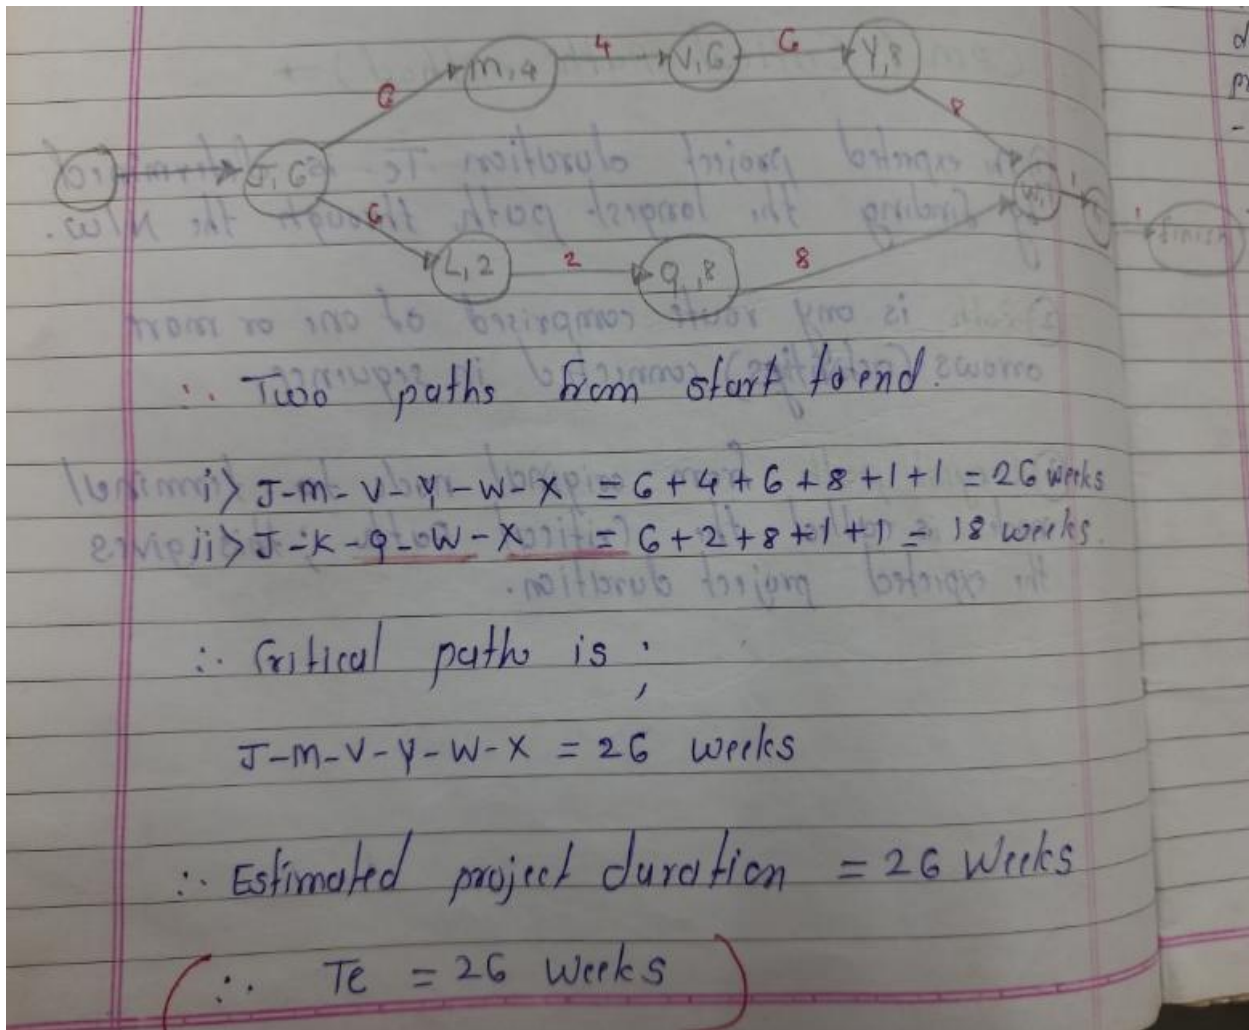 4 6
M, 4 V, 6 Y, 8
6 8
J, 6
W, 1 1
6 1
L, 2 2 Q, 8 8
∴ Two paths from start to end.
i> J-M-V-Y-W-X = 6+4+6+8+1+1 = 26 weeks
ii> J-K-Q-W-X = 6+2+8+1+1 = 18 weeks.
∴ Critical path is ;
J-M-V-Y-W-X = 26 weeks
∴ Estimated project duration = 26 Weeks
∴ Te = 26 Weeks